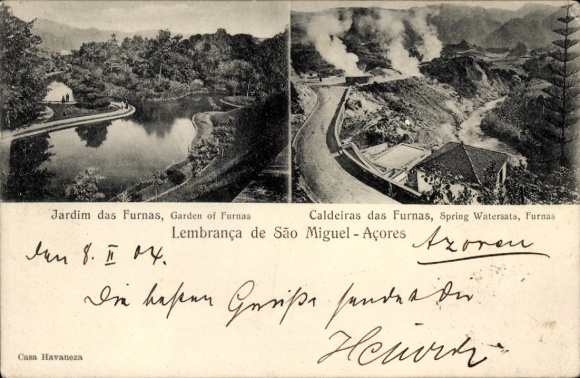 Jardim das Furnas, Garden of Furnas
Caldeiras das Furnas, Spring Watersata, Furnas
Lembrança de São Miguel - Açores
Azoren
den 8. II 04.
Die besten Grüße sendet dir
Casa Havaneza